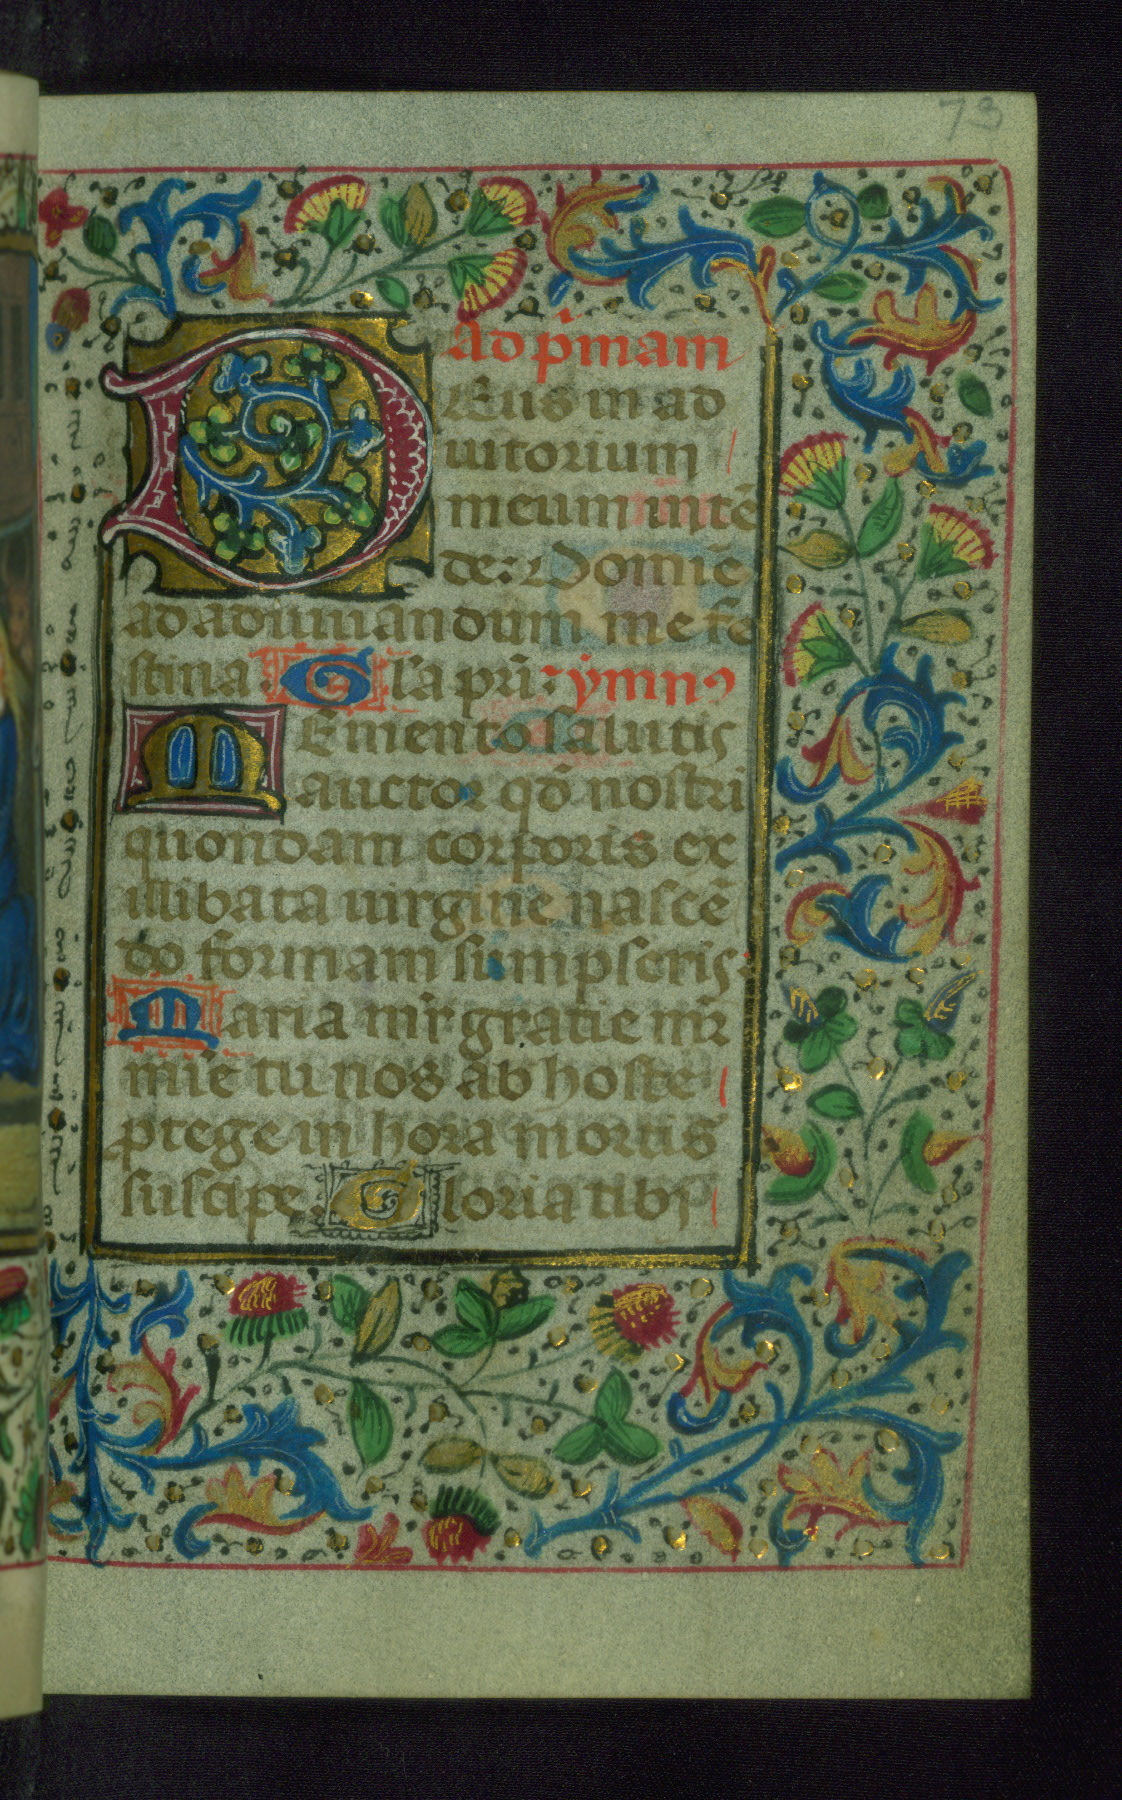 73
Ad p̄mam
DEus in ad
iutorium
meum intē
de: Domīe
ad adiuuandum me fe
stina. Gl̄a pr̄i. ymnꝰ
MEmento salutis
auctor qd̄ nostri
quondam corporis ex
illibata uirgine nascē
do formam sumpseris:
Maria mr̄ gratie mr̄
mie tu nos ab hoste
ꝓtege in hora mortis
suscipe. Gloria tibi